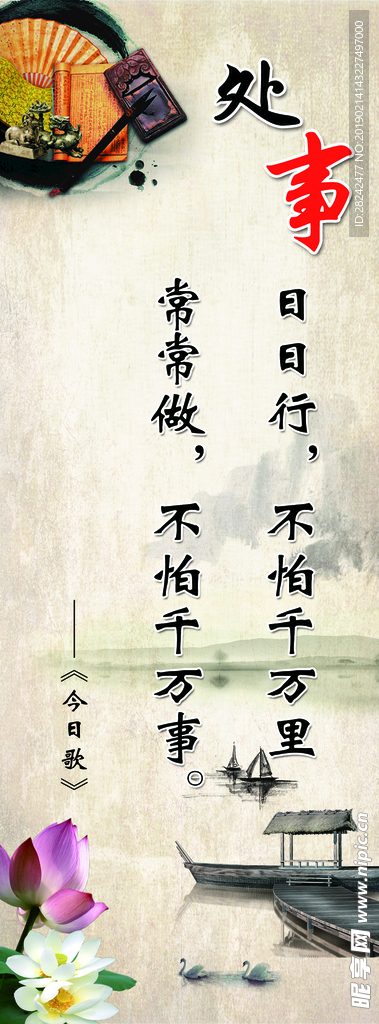 处事
日日行，不怕千万里
常常做，不怕千万事。
——《今日歌》
昵享网 www.nipic.cn
ID:28242477 NO:20190214143227497000